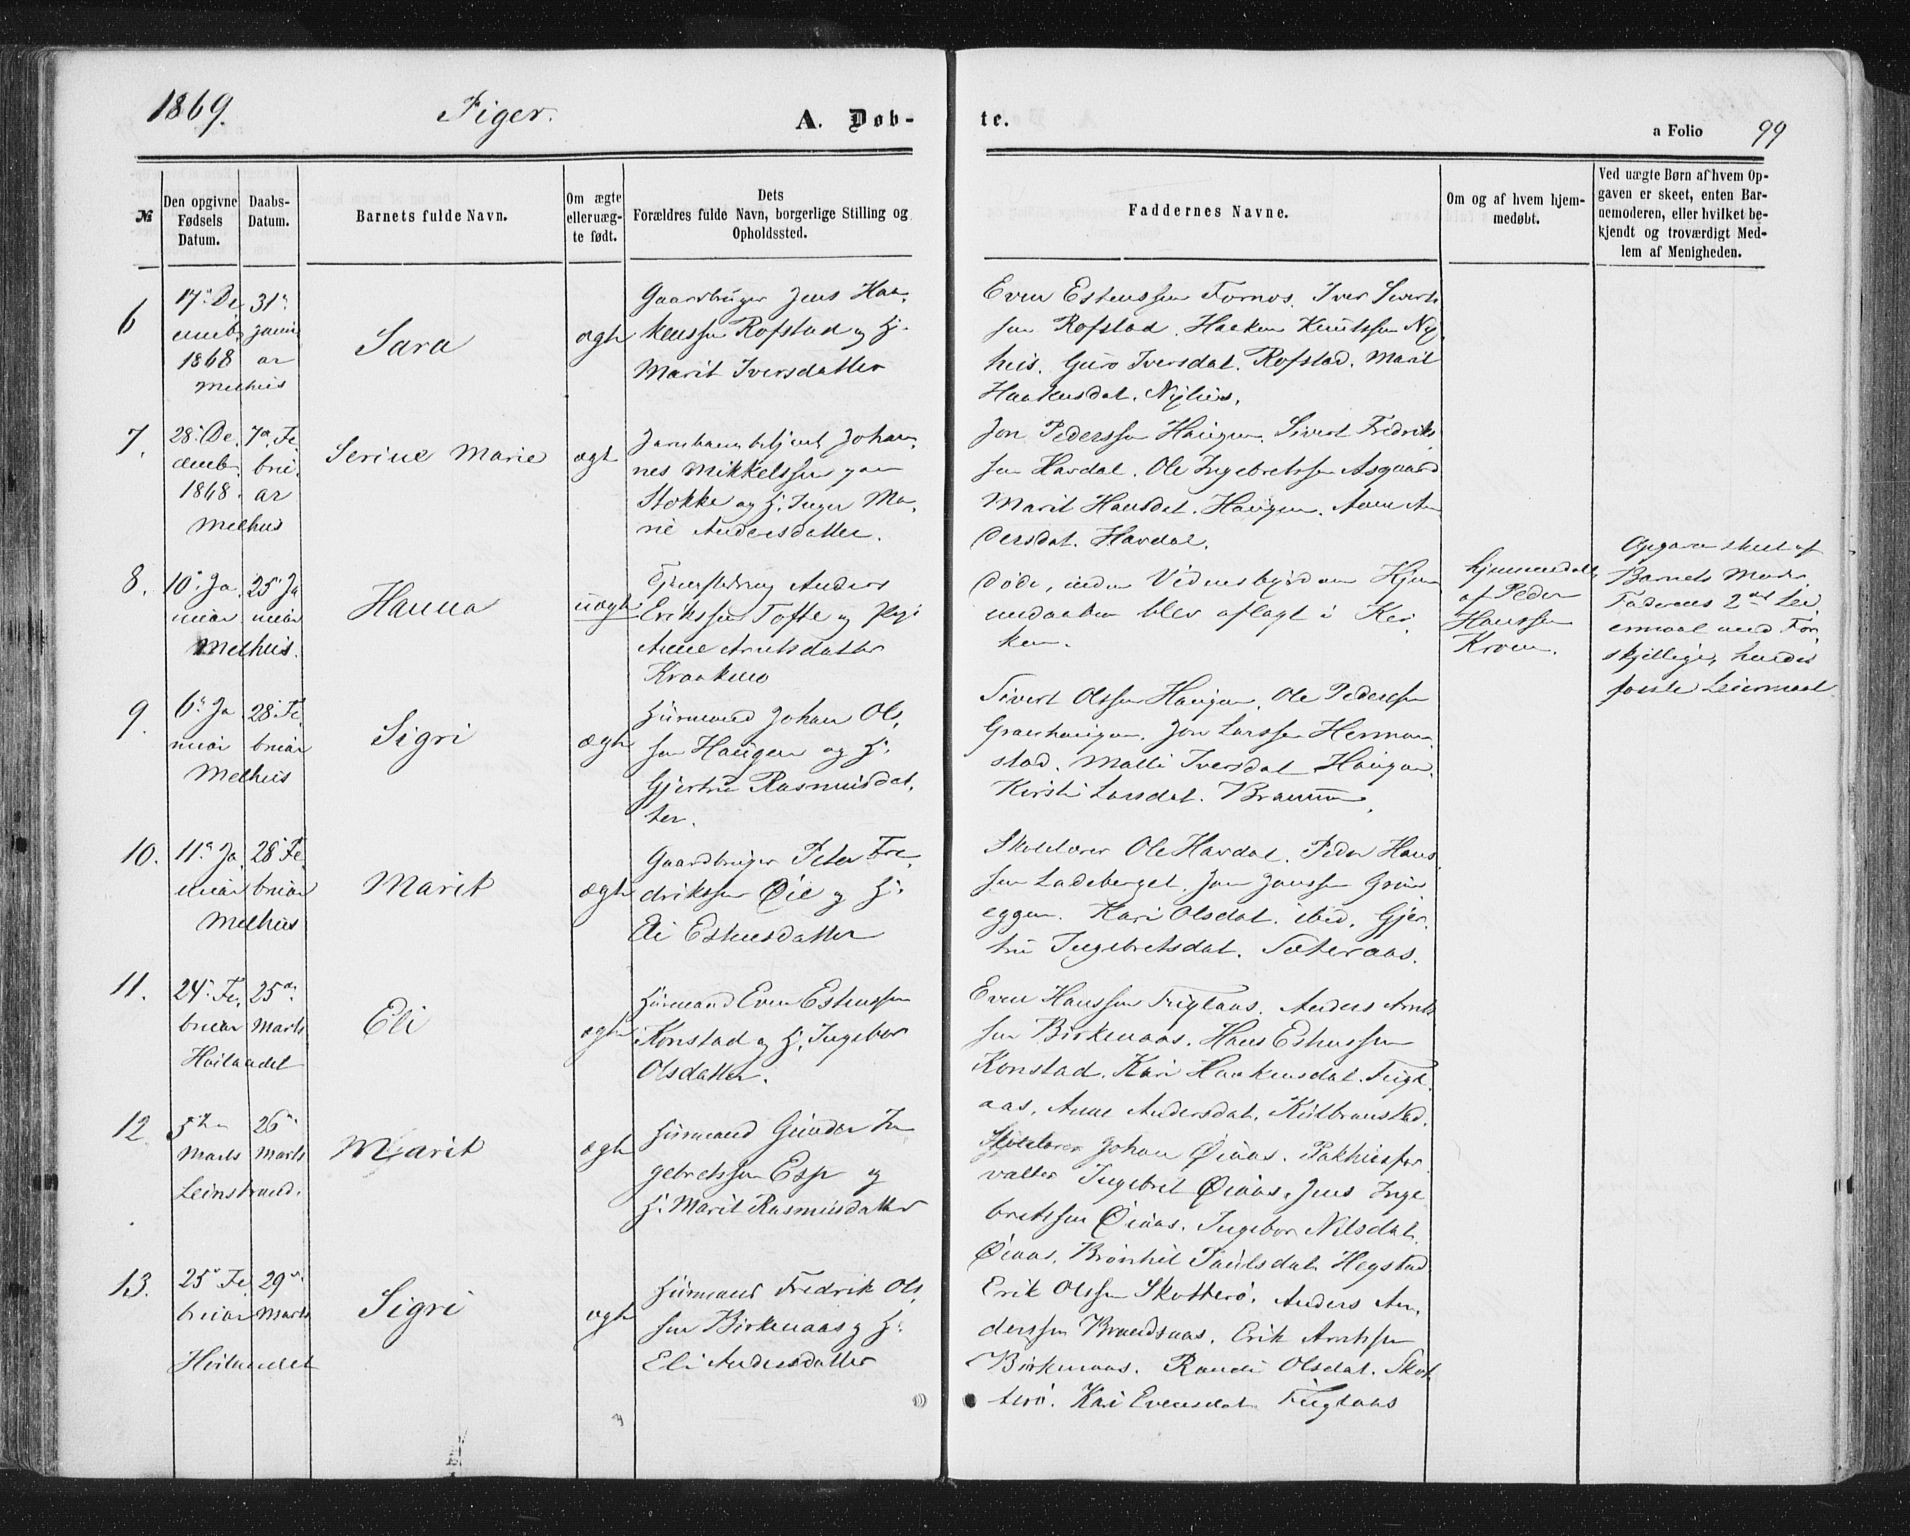 1869. Piger. A. Døb-
te. a Folio 99
№
Den opgivne
Fødsels
Datum.
Daabs-
Datum.
Barnets fulde Navn.
Om ægte
eller uæg-
te født.
Dets
Forældres fulde Navn, borgerlige Stilling og
Opholdssted.
Faddernes Navne.
Om og af hvem hjem-
medøbt.
Ved uægte Børn af hvem Op-
gaven er skeet, enten Bar-
nemoderen, eller hvilket be-
kjendt og troværdigt Med-
lem af Menigheden.
6
17de De
cemb.
1868
31te
Janu
ar
Melhus
Sara
ægte
Gaardbruger Jens Haa,
kenssen Rofstad og H.
Marit Iversdatter
Even Estenssen Fornos. Iver Siverts
sen Rofstad. Haaken Knutssen Ny
huis. Guro Iversdat. Rofstad. Marit
Haakensdat. Nyhuis.
7.
28de De
cemb.
1868.
7de Fe
bru
ar
Melhus
Serine Marie
ægte
Jernbanebetjent Johan,
nes Mikkelssen paa
Stokke og H. Inger Ma,
rie Andersdatter.
Jon Pederssen Haugen. Sivert Fredriks
sen Havdal. Ole Ingebretssen Asgaard
Marit Hansdat. Haugen. Anne An
dersdat. Havdal.
8.
10de Ja
nuar
25de Ja
nuar
Melhus.
Hanna
uægte
Anders
Erikssen Tofte og Pige
Anne Arntsdatter
Kraakmo
Døde, inden Vidnesbyrd om Hjem
medaaben blev aflagt i Kir,
ken.
hjemmedøbt
af Peder
Hanssen
Kroen.
Opgave skeet af
Barnets Moder.
Faderens 2det Lei
ermaal med For,
skjellige, hendes
første Leiermaal.
9.
6te Ja
nuar
28de Fe
bruar
Melhus
Sigri
ægte
Huusmand Johan Ols,
sen Haugen og H.
Gjertru Rasmusdat,
ter.
Sivert Olssen Haugen. Ole Pederssen
Granhaugen. Jon Larssen Herman
stad. Malli Iversdat Haugen.
Kirsti Larsdat.
10.
11te Ja
nuar
28de Fe
bruar
Melhus
Marit
ægte
Gaardbruger Peter Fre,
drikssen Øie og H.
Eli Estensdatter
Skolelærer Ole Havdal. Peder Hans
sen Ladeberget. Jon Jonssen Grøn
eggen. Kari Olsdat. ibid. Gjer-
tru Ingebretsdat. Sæteraas.
11.
24de Fe,
bruar
25de
Marts
Høilandet
Eli
ægte
Huusmand Even Estenssen
Konstad og H. Ingebor
Olsdatter.
Even Hanssen Fuglaas. Anders Arnts
sen Birkenaas. Hans Estenssen
Konstad. Kari Haakensdat. Fugl,
aas. Anne Andersdat. Kulbranstad.
12
5te
Marts
26de
Marts
Leinstrand.
Marit
ægte
Huusmand Gunder In
gebretssen Esp og
H. Marit Rasmusdatter
Skolelærer Johan Øiaas. Pakhuusfor
valter Ingebret Øiaas. Jens Inge
bretssen Øiaas. Ingebor Nilsdat.
Øiaas. Brønhil Paulsdat. Hegstad
13.
25de Fe
bruar
29de
Marts
Høilandet
Sigri
ægte
Huusmand Fredrik Ols,
sen Birkenaas og H.
Eli Andersdatter
Erik Olssen Skotterø. Anders An,
derssen Brandsaas. Erik Arntssen
Birkenaas. Randi Olsdat. Skot
terø. Kari Evensdat. Fuglaas